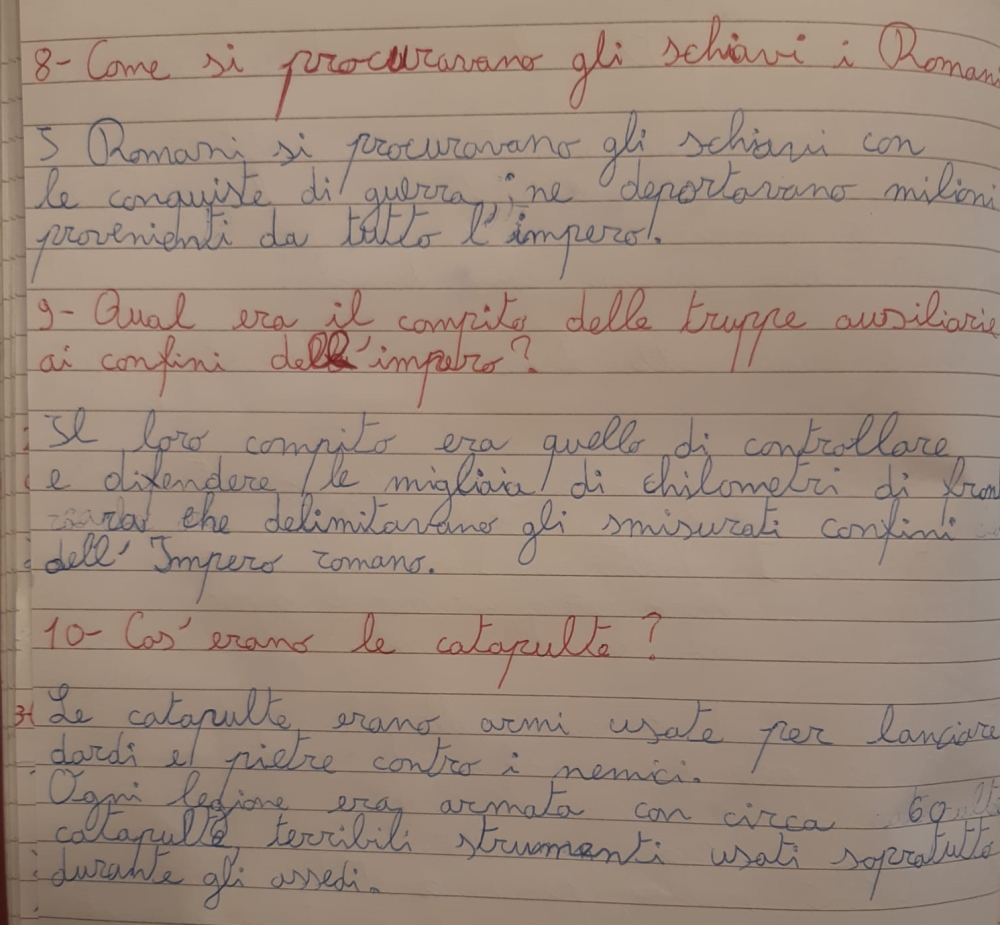 8- Come si procuravano gli schiavi i Romani
I Romani si procuravano gli schiavi con
le conquiste di guerra, ne deportavano milioni
provenienti da tutto l'impero.
9- Qual era il compito delle truppe ausiliarie
ai confini dell'impero?
Il loro compito era quello di controllare
e difendere le migliaia di chilometri di fron
che delimitavano gli smisurati confini
dell'Impero romano.
10- Cos'erano le catapulte?
Le catapulte erano armi usate per lanciare
dardi e pietre contro i nemici.
Ogni legione era armata con circa 60
catapulte, terribili strumenti usati sopratutto
durante gli assedi.